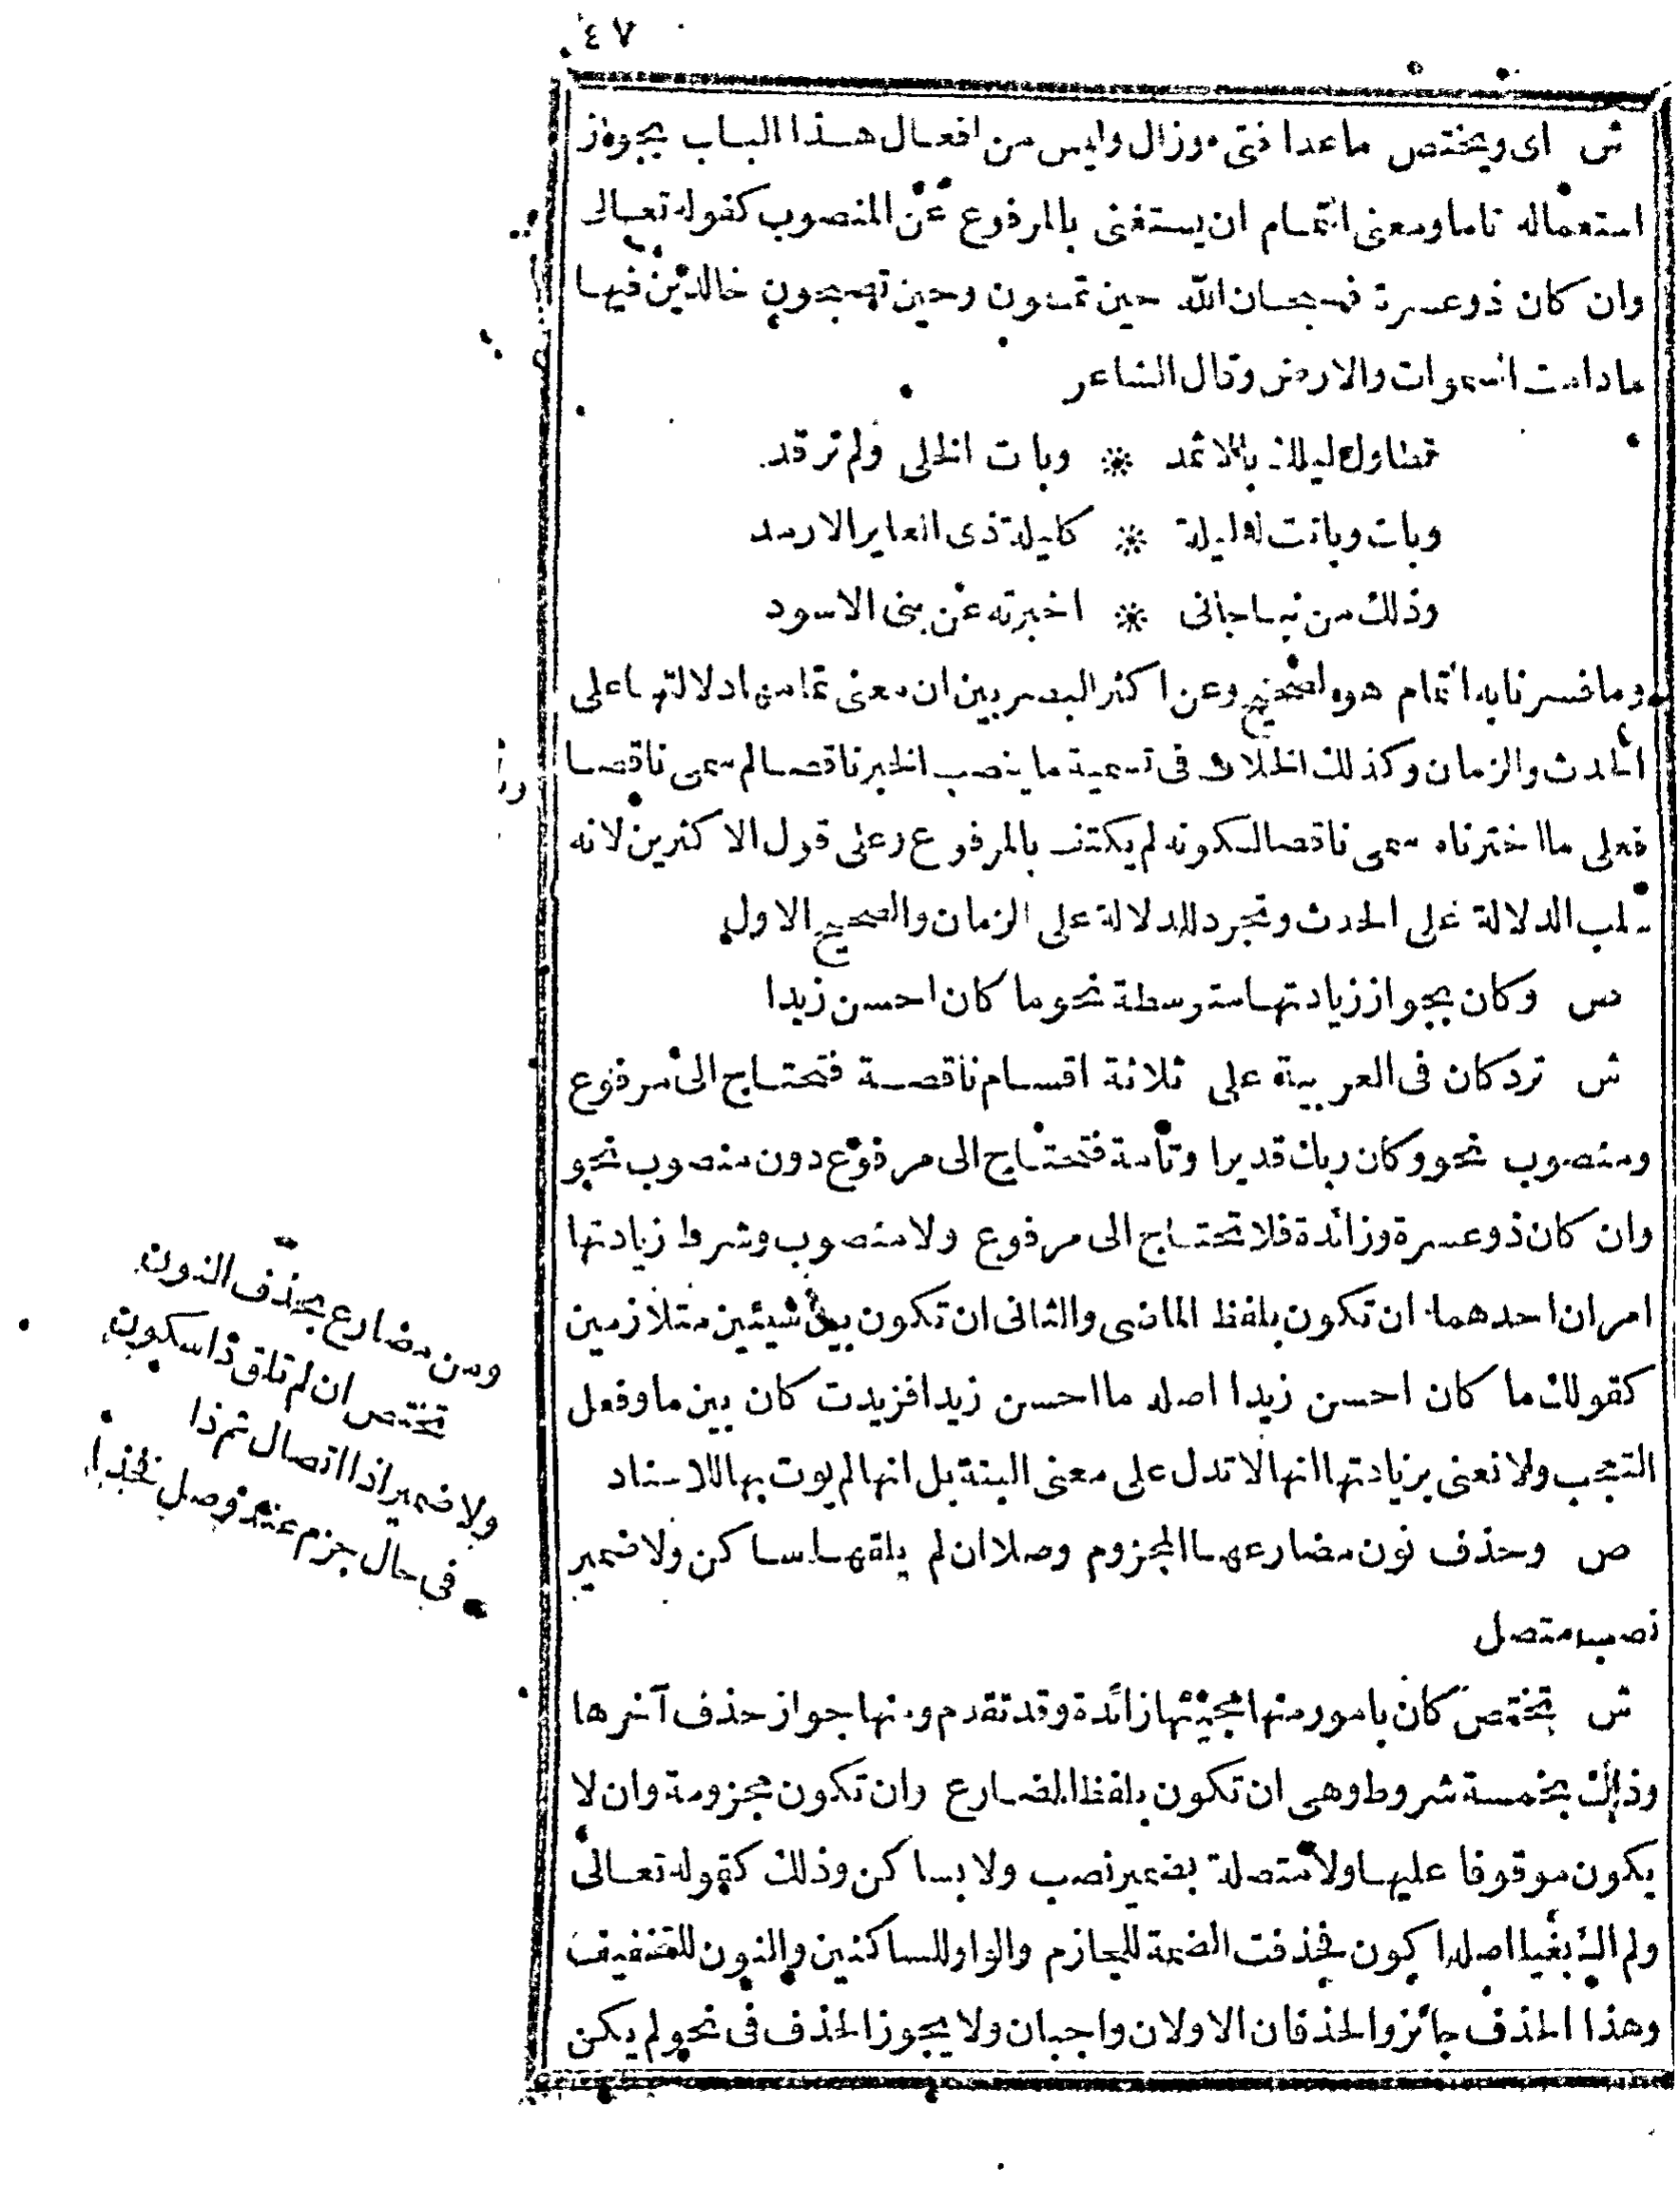 ٤٧
ش اى ويختص ماعدا فتى وزال وليس من افعال هذا الباب بجواز
استعماله تاما ومعنى التمام ان يستغنى بالمرفوع عن المنصوب كقوله تعالى
وان كان ذو عسرة فسبحان الله حين تمسون وحين تصبحون خالدين فيها
مادامت السموات والارض وقال الشاعر
تطاول ليلك بالاثمد * وبات الخلى ولم ترقد
وبات وباتت له ليلة * كليلة ذى العاير الارمد
وذلك من نبا جانى * اخبرته عن بنى الاسود
وما فسرنا به التمام هو الصحيح وعن اكثر البصريين ان معنى تمامها دلالتها على
الحدث والزمان وكذلك الخلاف فى تسمية ما ينصب الخبر ناقصا لم سمى ناقصا
فعلى ما اخترناه سمى ناقصا لكونه لم يكتف بالمرفوع وعلى قول الاكثرين لانه
سلب الدلالة على الحدث وتجرد للدلالة على الزمان والصحيح الاول
ص وكان بجواز زيادتها متوسطة نحو ما كان احسن زيدا
ش ترد كان فى العربية على ثلاثة اقسام ناقصة فتحتاج الى مرفوع
ومنصوب نحو وكان ربك قديرا وتامة فتحتاج الى مرفوع دون منصوب نحو
وان كان ذو عسرة وزائدة فلا تحتاج الى مرفوع ولا منصوب وشرط زيادتها
امران احدهما ان تكون بلفظ الماضى والثانى ان تكون بين شيئين متلازمين
كقولك ما كان احسن زيدا اصله ما احسن زيدا فزيدت كان بين ما وفعل
التعجب ولا نعنى بزيادتها انها لا تدل على معنى البتة بل انها لم يوت بها للاسناد
ص وحذف نون مضارعها المجزوم وصلا ان لم يلقها ساكن ولا ضمير
نصب متصل
ش تختص كان بامور منها مجيئها زائدة وقد تقدم ومنها جواز حذف آخرها
وذلك بخمسة شروط وهى ان تكون بلفظ المضارع وان تكون مجزومة وان لا
يكون موقوفا عليها ولا متصلة بضمير نصب ولا بساكن وذلك كقوله تعالى
ولم اك بغيا اصله اكون فحذفت الضمة للجازم والواو للساكنين والنون للتخفيف
وهذا الحذف جائز والحذفان الاولان واجبان ولا يجوز الحذف فى نحو لم يكن
ومن مضارع بحذف النون
تختص ان لم تلق ذا سكون
ولا ضمير اذا اتصال ثم ذا
فى حال جزم عند وصل نحذا